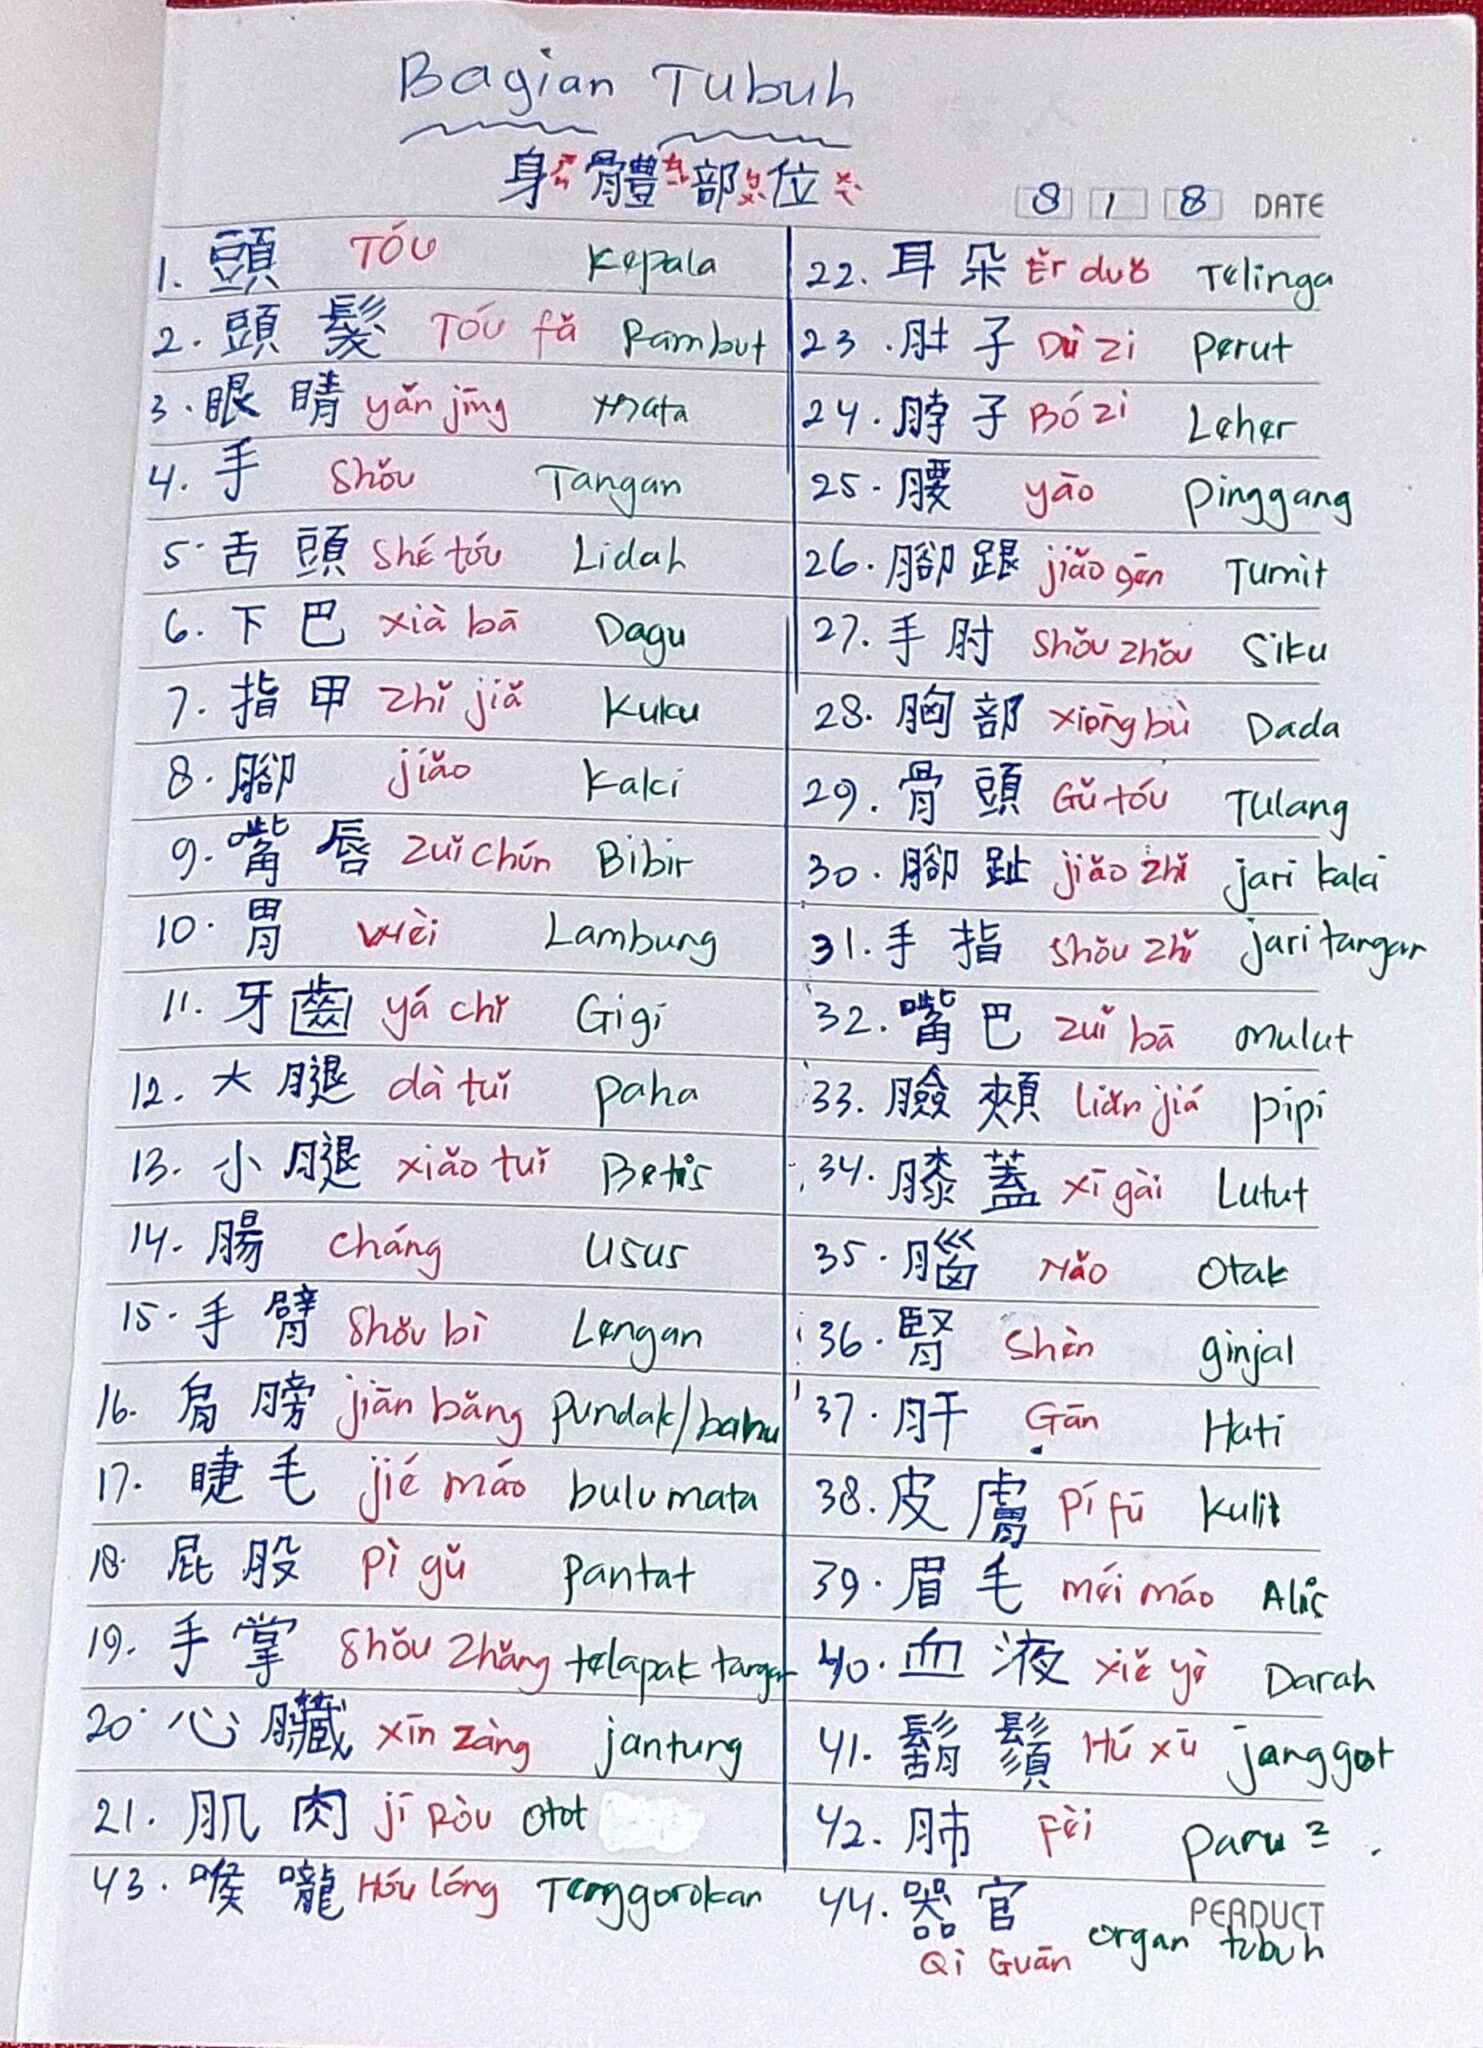 Bagian Tubuh
身體部位
8 1 8 DATE
1. 頭 Tóu Kepala
2. 頭髮 Tóu fǎ Rambut
3. 眼睛 yǎn jīng mata
4. 手 Shǒu Tangan
5. 舌頭 Shé tóu Lidah
6. 下巴 xià bā Dagu
7. 指甲 Zhǐ jiǎ Kuku
8. 腳 jiǎo Kaki
9. 嘴唇 Zuǐ chún Bibir
10. 胃 wèi Lambung
11. 牙齒 yá chǐ Gigi
12. 大腿 dà tuǐ paha
13. 小腿 xiǎo tuǐ Betis
14. 腸 cháng usus
15. 手臂 Shǒu bì Lengan
16. 肩膀 jiān bǎng pundak/bahu
17. 睫毛 jié máo bulu mata
18. 屁股 pì gǔ pantat
19. 手掌 Shǒu Zhǎng telapak tangan
20. 心臟 xīn zàng jantung
21. 肌肉 jī Ròu Otot
43. 喉嚨 Hóu lóng Tenggorokan
22. 耳朵 ěr duǒ Telinga
23. 肚子 Dù zi perut
24. 脖子 Bó zi Leher
25. 腰 yāo pinggang
26. 腳跟 jiǎo gēn Tumit
27. 手肘 Shǒu zhǒu Siku
28. 胸部 xiōng bù Dada
29. 骨頭 Gǔ tóu Tulang
30. 腳趾 jiǎo zhǐ jari kaki
31. 手指 Shǒu zhǐ jari tangan
32. 嘴巴 zuǐ bā mulut
33. 臉頰 liǎn jiá pipi
34. 膝蓋 xī gài Lutut
35. 腦 Nǎo Otak
36. 腎 Shèn ginjal
37. 肝 Gān Hati
38. 皮膚 pí fū Kulit
39. 眉毛 méi máo Alis
40. 血液 xiě yè Darah
41. 鬍鬚 Hú xū janggot
42. 肺 Fèi paru 2
44. 器官 PERDUCT
Qì Guān organ tubuh